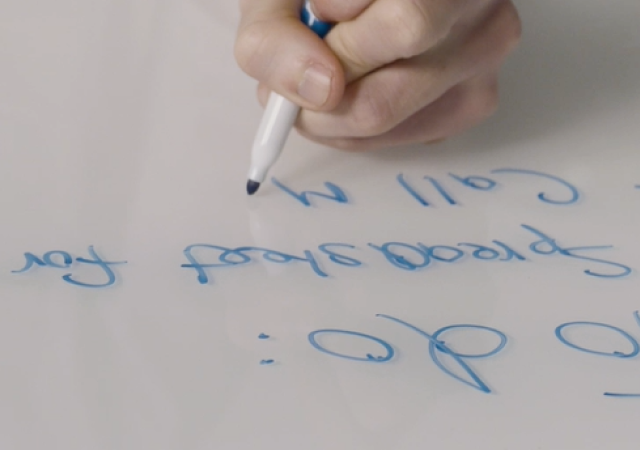 To do:
Spreadsheet for
- Call M